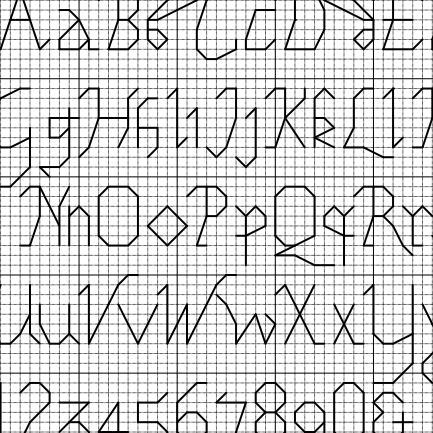 A a B b C c D d E
g H h I i J j K k L l
N n O o P p Q q R r
u V v W w X x Y
2 3 4 5 6 7 8 9 0